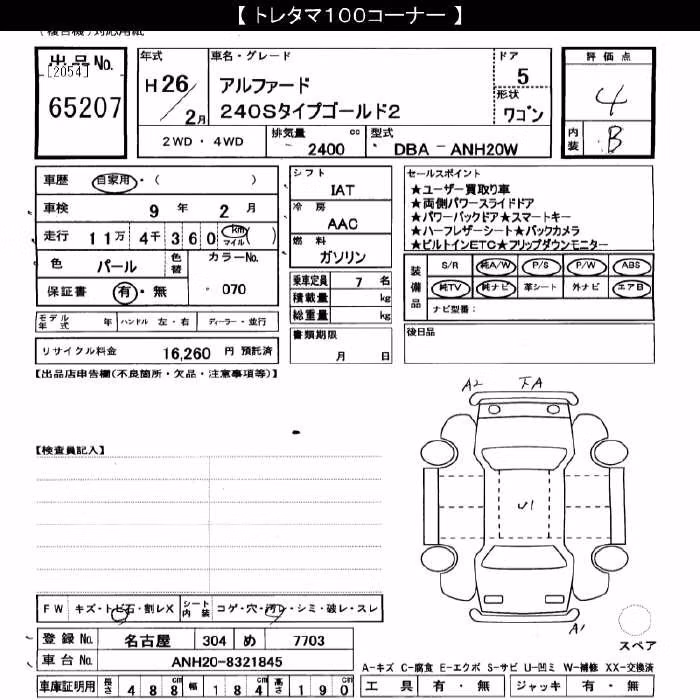 【 トレタマ100コーナー 】
(複合機)対応用紙
出品No.
[2054]
65207
年式
H 26
2月
車名・グレード
アルファード
240Sタイプゴールド2
ドア
5
形状
ワゴン
評価点
4
内装
B
2WD・4WD
排気量
cc
2400
型式
DBA - ANH20W
車歴
自家用・( )
車検
9 年 2 月
走行
11万 4千 360 km マイル ( )
色
パール
色替
カラーNo.
070
保証書
有・無
シフト
IAT
冷房
AAC
燃料
ガソリン
乗車定員 7 名
積載量 kg
総重量 kg
書類期限
月 日
セールスポイント
★ユーザー買取り車
★両側パワースライドドア
★パワーバックドア★スマートキー
★ハーフレザーシート★バックカメラ
★ビルトインETC★フリップダウンモニター
装備品
S/R 純A/W P/S P/W ABS
純TV 純ナビ 革シート 外ナビ エアB
ナビ型番:
モデル年式 年 ハンドル 左・右 ディーラー・並行
後日品
リサイクル料金 16,260 円 預託済
【出品店申告欄(不良箇所・欠品・注意事項等)】
A2 下A
【検査員記入】
U1
FW キズ・トビ石・割レX シート内装 コゲ・穴・汚レ・シミ・破レ・スレ
A1
スペア
登録No. 名古屋 304 め 7703
車台No. ANH20-8321845
A-キズ C-腐食 E-エクボ S-サビ U-凹ミ W-補修 XX-交換済
車庫証明用 長さ 488 cm 幅 184 cm 高さ 190 cm
工具 有・無 ジャッキ 有・無